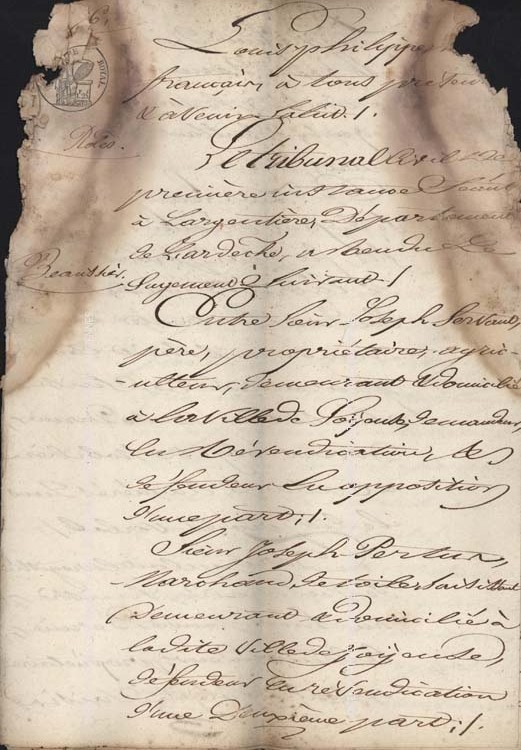 Louis philippe
français, à tous présens
& à venir Salut. /.
Le tribunal Civil de
première instance Séant
à Largentière, Département
de L'ardèche, a rendu Le
Jugement Suivant. /
Entre Sieur Joseph Servant,
père, propriétaire, agri-
-culteur, demeurant & domicilié
à la ville de Joyeuse, demandeur
en Révendication, &
défendeur en opposition
d'une part; /.
Sieur Joseph Pertus,
Marchand, de toiles
demeurant & domicilié à
la dite Ville de joyeuse,
défendeur en revendication
d'une Deuxième part; /.